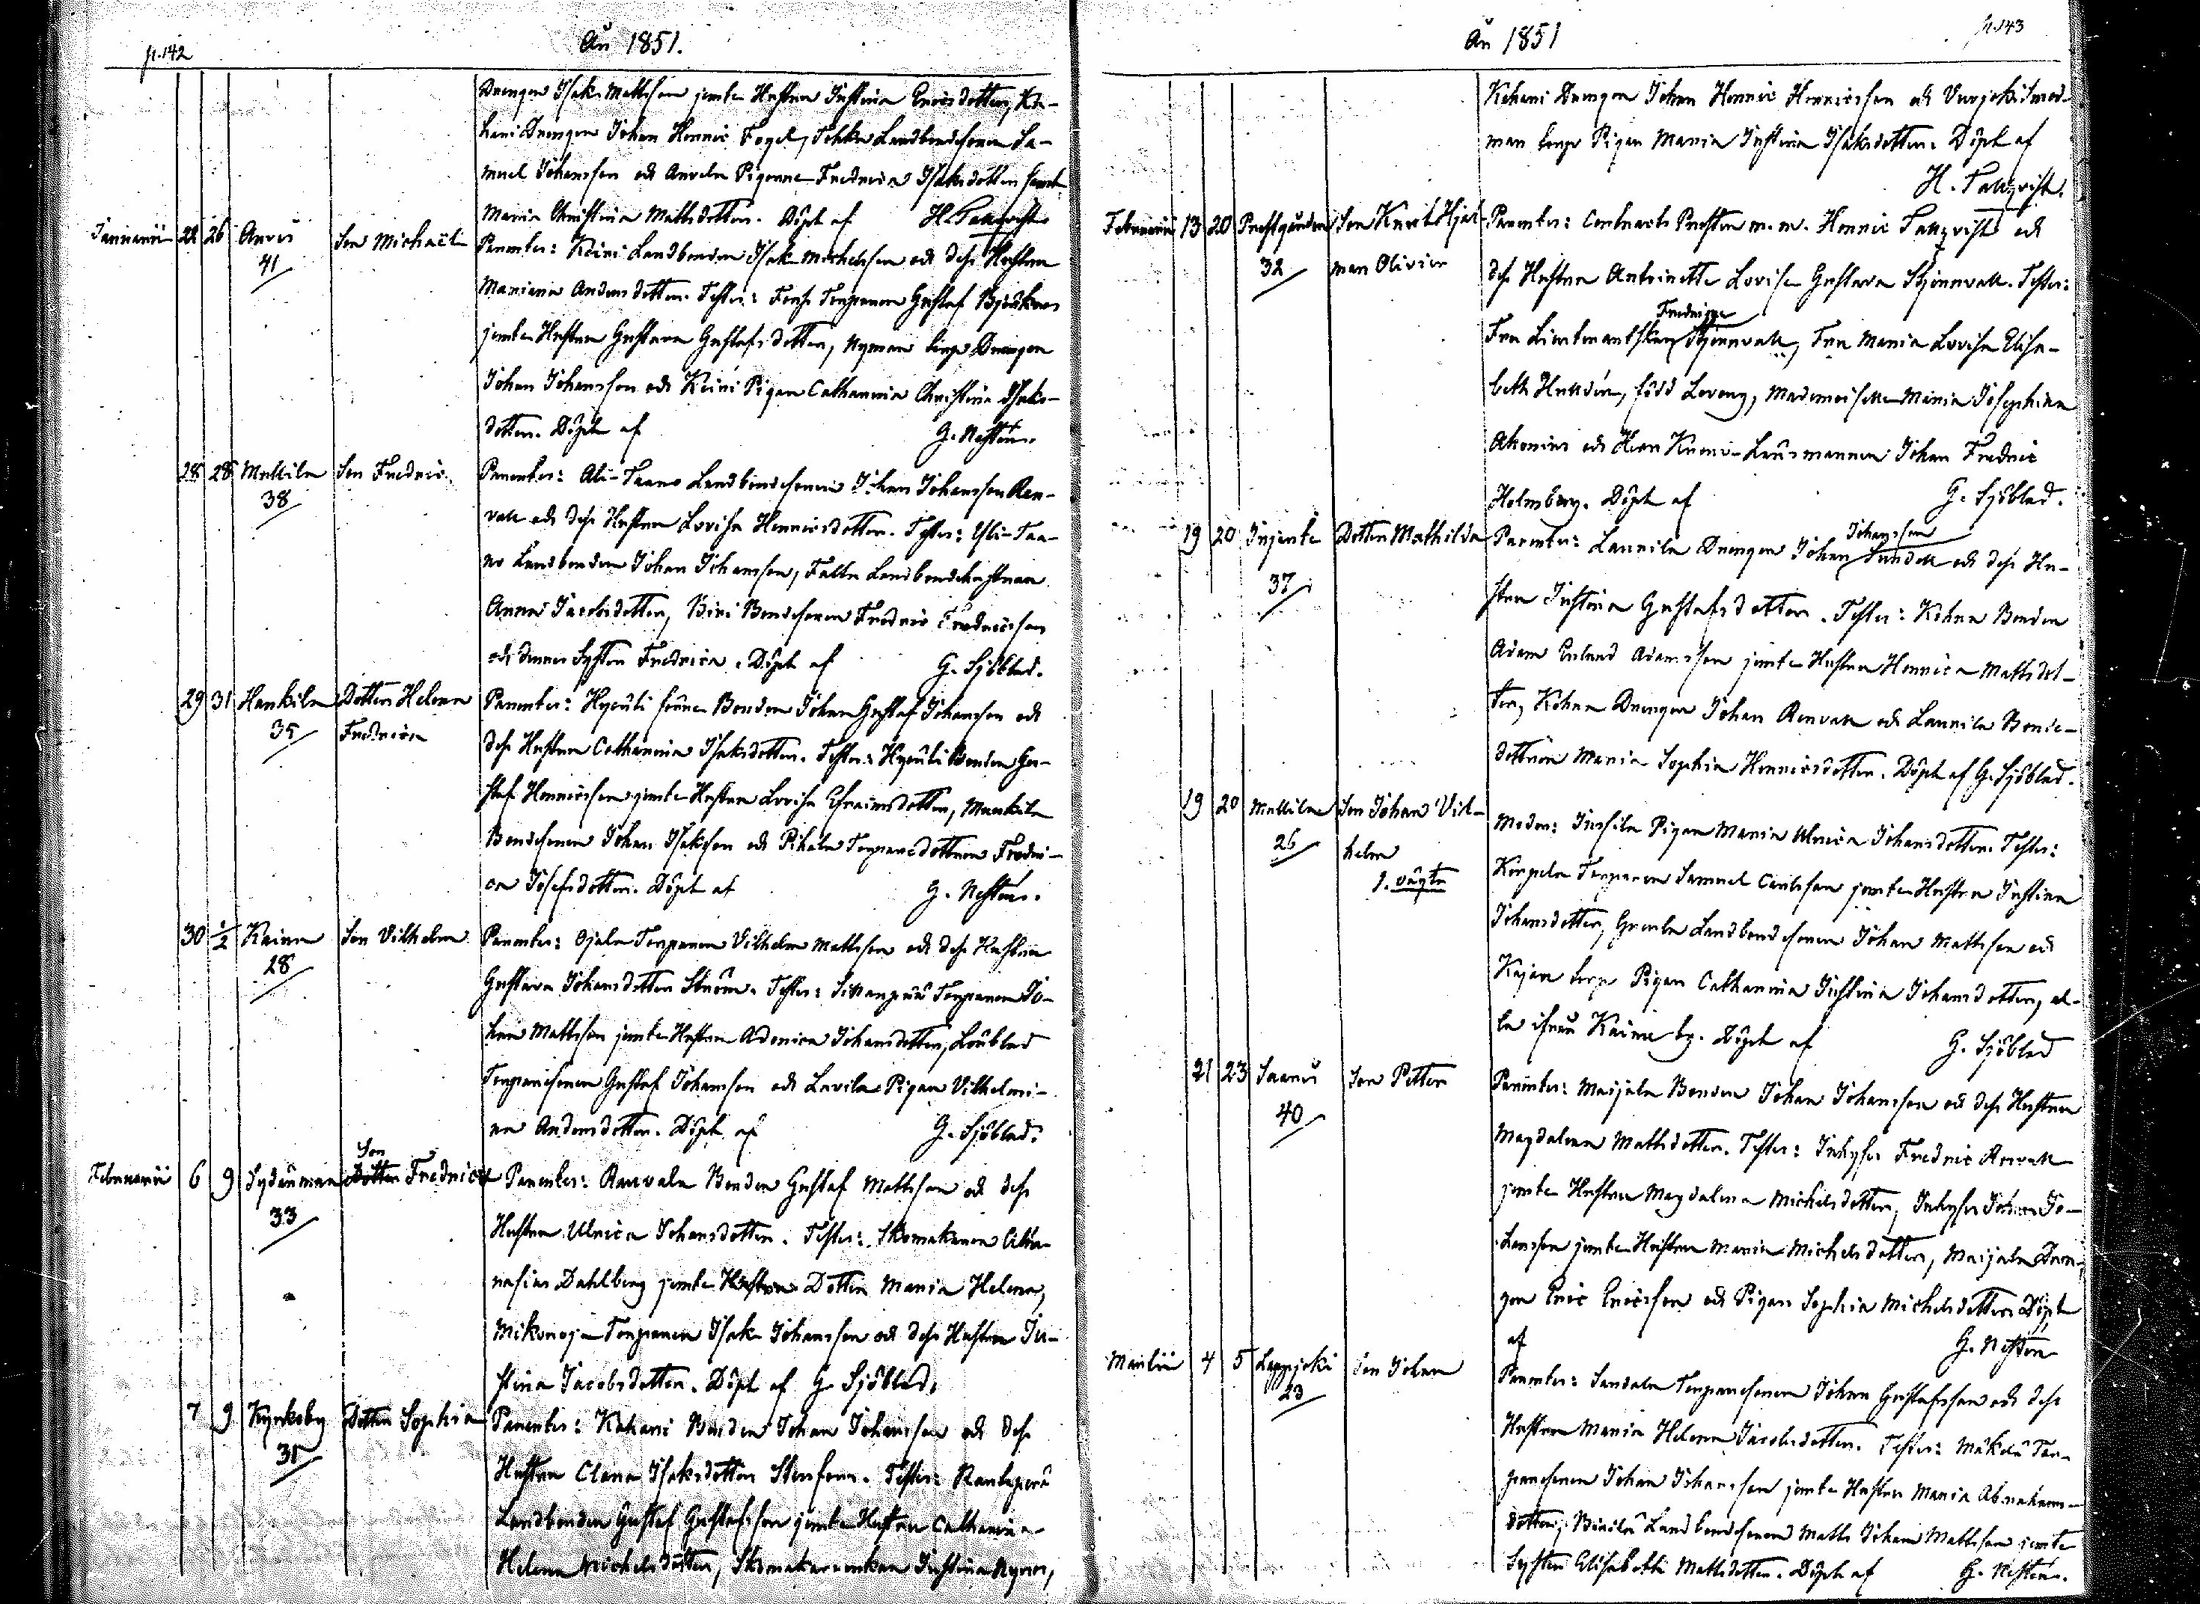 p. 142
År 1851.
Drengen Isak Mattsson jemte Hustrun Justina Ericsdotter, Ka-
hari Drengen Johan Henric Fogel, Landbondesonen Sa-
muel Johansson och Anvela Pigorna Fredrica Isaksdotter samt
Maria Christina Mattsdotter. Döpt af H. Tallqvist.
Januarii 22 26 Anvis Son Michaël Parentes: Keini Landbonden Isak Michelsson och dess Hustru
41 Mariana Andersdotter. Testes: Torparen Gustaf Björkman
jemte Hustrun Gustava Gustafsdotter, Nyman Drengen
Johan Johansson och Keini Pigan Catharina Christina Isaks-
dotter. Döpt af G. Nestén.
28 28 Mullila Son Fredric. Parentes: Ali-Taano Landbondesonen Johan Johansson Ren-
38 vall och dess Hustru Lovisa Henricsdotter. Testes: Yli-Taa-
no Landbonden Johan Johansson, Landbondehustrun
Anna Jacobsdotter, Bondesonen Fredric Fredricsson
och dennes Syster Fredrica. Döpt af G. Sjöblad.
29 31 Hankila Dotter Helena Parentes: Hycoüli Bonden Johan Gustaf Johansson och
35 Fredrica dess Hustru Catharina Isaksdotter. Testes: Bonden Gu-
staf Henricsson jemte Hustrun Lovisa Efraimsdotter, Mankila
Bondesonen Johan Isaksson och Pihala Torparedottren Fredri-
ca Josefsdotter. Döpt af G. Nestén.
30 1/2 Kaina Son Vilhelm Parentes: Ojala Torparen Vilhelm Mattsson och dess Hustru
28 Gustava Johansdotter Ström. Testes: Torparen Jo-
han Mattsson jemte Hustrun Adonica Johansdotter, Löüblad
Torparesonen Gustaf Johansson och Lavila Pigan Vilhelmi-
na Andersdotter. Döpt af G. Sjöblad.
Son
Februarii 6 9 Sydänmaa Dotter Fredrica Parentes: Bonden Gustaf Mattsson och dess
33 Hustru Ulrica Johansdotter. Testes: Skomakaren Atha-
nasius Dahlberg jemte Hustrun Dotter Maria Helena,
Mikonoja Torparen Isak Johansson och dess Hustru Ju-
stina Jacobsdotter. Döpt af G. Sjöblad.
7 9 Kynksby Dotter Sophia Parentes: Kahari Bonden Johan Johansson och dess
31 Hustru Clara Isaksdotter Stenfors. Testes: Rantaperä
Landbonden Gustaf Gustafsson jemte Hustrun Catharina
Helena Michelsdotter, Skomakareenkan Justina Nyman,
p. 143
År 1851
Kahari Drengen Johan Henric Henricsson och
man torp Pigan Maria Justina Isaksdotter. Döpt af
H. Tallqvist.
Februarii 13 20 Prestgården Son Kurt Hjal- Parentes: Contracts Prosten m.m. Henric Tallqvist och
32 mar Olivier dess Hustru Antoinette Lovisa Gustava Stjernvall. Testes:
Fredrique
Fru Lieutenantskan Stjernvall, Fru Maria Lovisa Elisa-
beth Hulldin, född Loveng, Mademoiselle Maria Josephina
Akonius och Herr Krono-Länsmannen Johan Fredric
Holmberg. Döpt af G. Sjöblad.
Johansson
19 20 Dotter Mathilda Parentes: Lannila Drengen Johan Sundell och dess Hu-
37 stru Justina Gustafsdotter. Testes: Köhna Bonden
Adam Erland Adamsson jemte Hustrun Henrica Mattsdot-
ter, Köhna Drengen Johan Renvall och Lannila Bonde-
dottren Maria Sophia Henricsdotter. Döpt af G. Sjöblad.
19 20 Mullila Son Johan Vil- Moder: Jussila Pigan Maria Ulrica Johansdotter. Testes:
26 helm Torparen Samuel Carlsson jemte Hustrun Justina
o. ägta Johansdotter, Landbondesonen Johan Mattsson och
Kajan torp Pigan Catharina Justina Johansdotter, al-
la ifrån Kaina by. Döpt af G. Sjöblad
21 23 Saaris Son Petter Parentes: Maijala Bonden Johan Johansson och dess Hustru
40 Magdalena Mattsdotter. Testes: Inhyses Fredric Renvall
jemte Hustrun Magdalena Michelsdotter, Inhyses Johan Jo-
hansson jemte Hustrun Maria Michelsdotter, Maijala Dren-
gen Eric Ericsson och Pigan Sophia Michelsdotter. Döpt
af G. Nestén
Martii 4 5 Lappjoki Son Johan Parentes: Sandala Torparesonen Johan Gustafsson och dess
23 Hustru Maria Helena Jacobsdotter. Testes: Mäkelä Tor-
paresonen Johan Johansson jemte Hustrun Maria Abrahams-
dotter, Landbondesonen Matts Johan Mattsson jemte
Systern Elisabeth Mattsdotter. Döpt af G. Nestén.